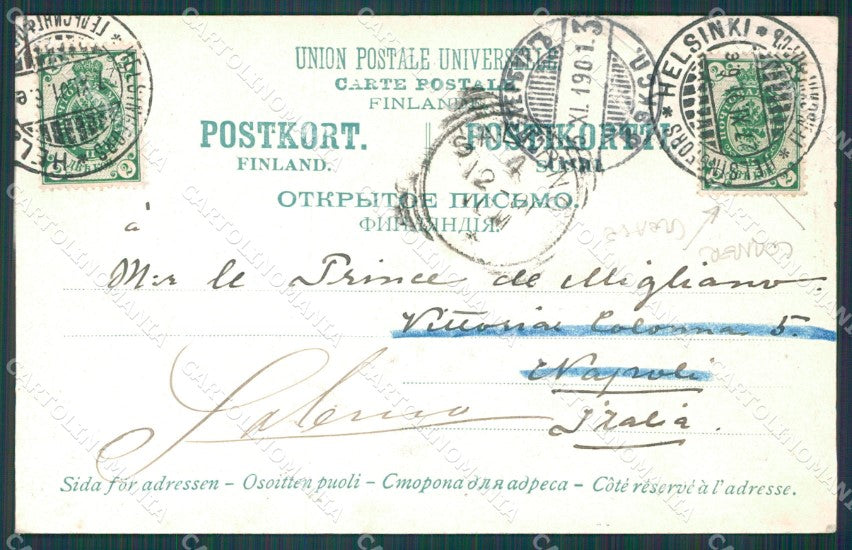 UNION POSTALE UNIVERSELLE
CARTE POSTALE
FINLANDE
POSTKORT. POSTIKORTTI
FINLAND. SUOMI
ОТКРЫТОЕ ПИСЬМО.
ФИНЛЯНДІЯ.
HELSINKI
HELSINGFORS
XI.1901.3
à
M:r le Prince de Migliano.
Vittoria Colonna 5.
Napoli
Italia.
Salerno
Sida för adressen – Osoitten puoli – Сторона для адреса – Côté réservé à l'adresse.
CARTOLINOMANIA